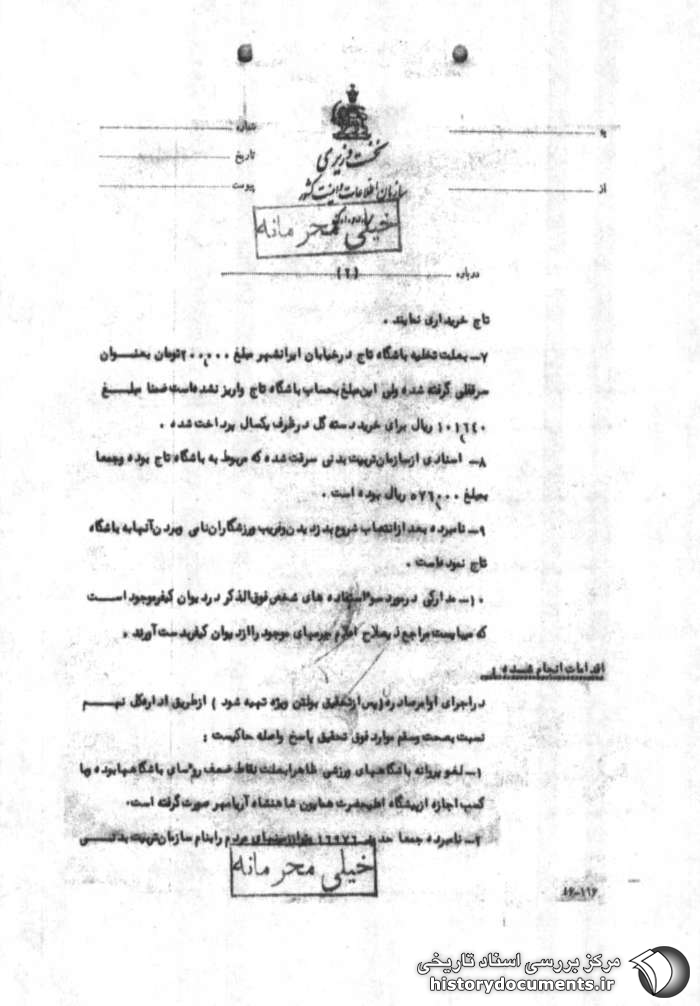 نخست وزیری
سازمان اطلاعات و امنیت کشور
شماره
تاریخ
پیوست
به
از
خیلی محرمانه
درباره (۲)
تاج خریداری نمایند .
۷ـ بعلت تخلیه باشگاه تاج درخیابان ایرانشهر مبلغ تومان بعنوان
سرقفلی گرفته شده ولی این مبلغ بحساب باشگاه تاج واریز نشده است ضمنا مبلغ
۱۰۱۶۴۰ ریال برای خرید دسته گل درظرف یکسال پرداخت شده .
۸ـ اسنادی ازسازمان تربیت بدنی سرقت شده که مربوط به باشگاه تاج بوده وجمعا
بمبلغ ۵۷۶۰۰۰ ریال بوده است .
۹ـ نامبرده بعد ازانتصاب شروع بدزدیدن وفریب ورزشکاران نامی وبردن آنهابه باشگاه
تاج نموده است .
۱۰ـ مدارکی درمورد سوءاستفاده های شخص فوق الذکر دردیوان کیفرموجود است
که میبایست مراجع ذیصلاح جرمهای موجود راازدیوان کیفربدست آورند .
اقدامات انجام شده :
دراجرای اوامرصادره (پس ازتحقیق بولتن ویژه تهیه شود ) ازطریق اداره کل نهم
نسبت بصحت وسقم موارد فوق تحقیق پاسخ واصله حاکیست :
۱ـ لغو پروانه باشگاههای ورزشی ظاهرا بعلت نقاط ضعف روسای باشگاهها بوده وبا
کسب اجازه ازپیشگاه اعلیحضرت همایون شاهنشاه آریامهر صورت گرفته است.
۲ـ نامبرده جمعا حدود ۱۶۹۷۶ مردم را بنام سازمان تربیت بدنی
خیلی محرمانه
۱۶-۱۱۶
مرکز بررسی اسناد تاریخی
historydocuments.ir